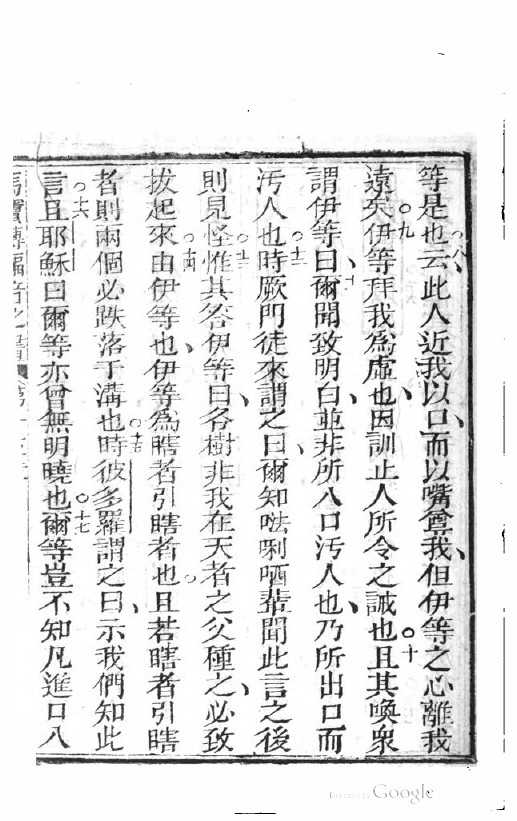 等是也云此人近我以口而以嘴尊我但伊等之心離我
遠矣○九伊等拜我爲虛也因訓止人所令之誡也○十且其喚衆
謂伊等曰爾聞致明白○十一並非所入口汚人也乃所出口而
汚人也○十二時厥門徒來謂之曰爾知𠵽唎哂輩聞此言之後
則見怪惟○十三其答伊等曰各樹非我在天者之父種之必致
拔起來○十四由伊等也伊等爲瞎者引瞎者也且若瞎者引瞎
者則兩個必跌落于溝也○十五時彼多羅謂之曰示我們知此
言○十六且耶穌曰爾等亦曾無明曉也○十七爾等豈不知凡進口入
Digitized by Google